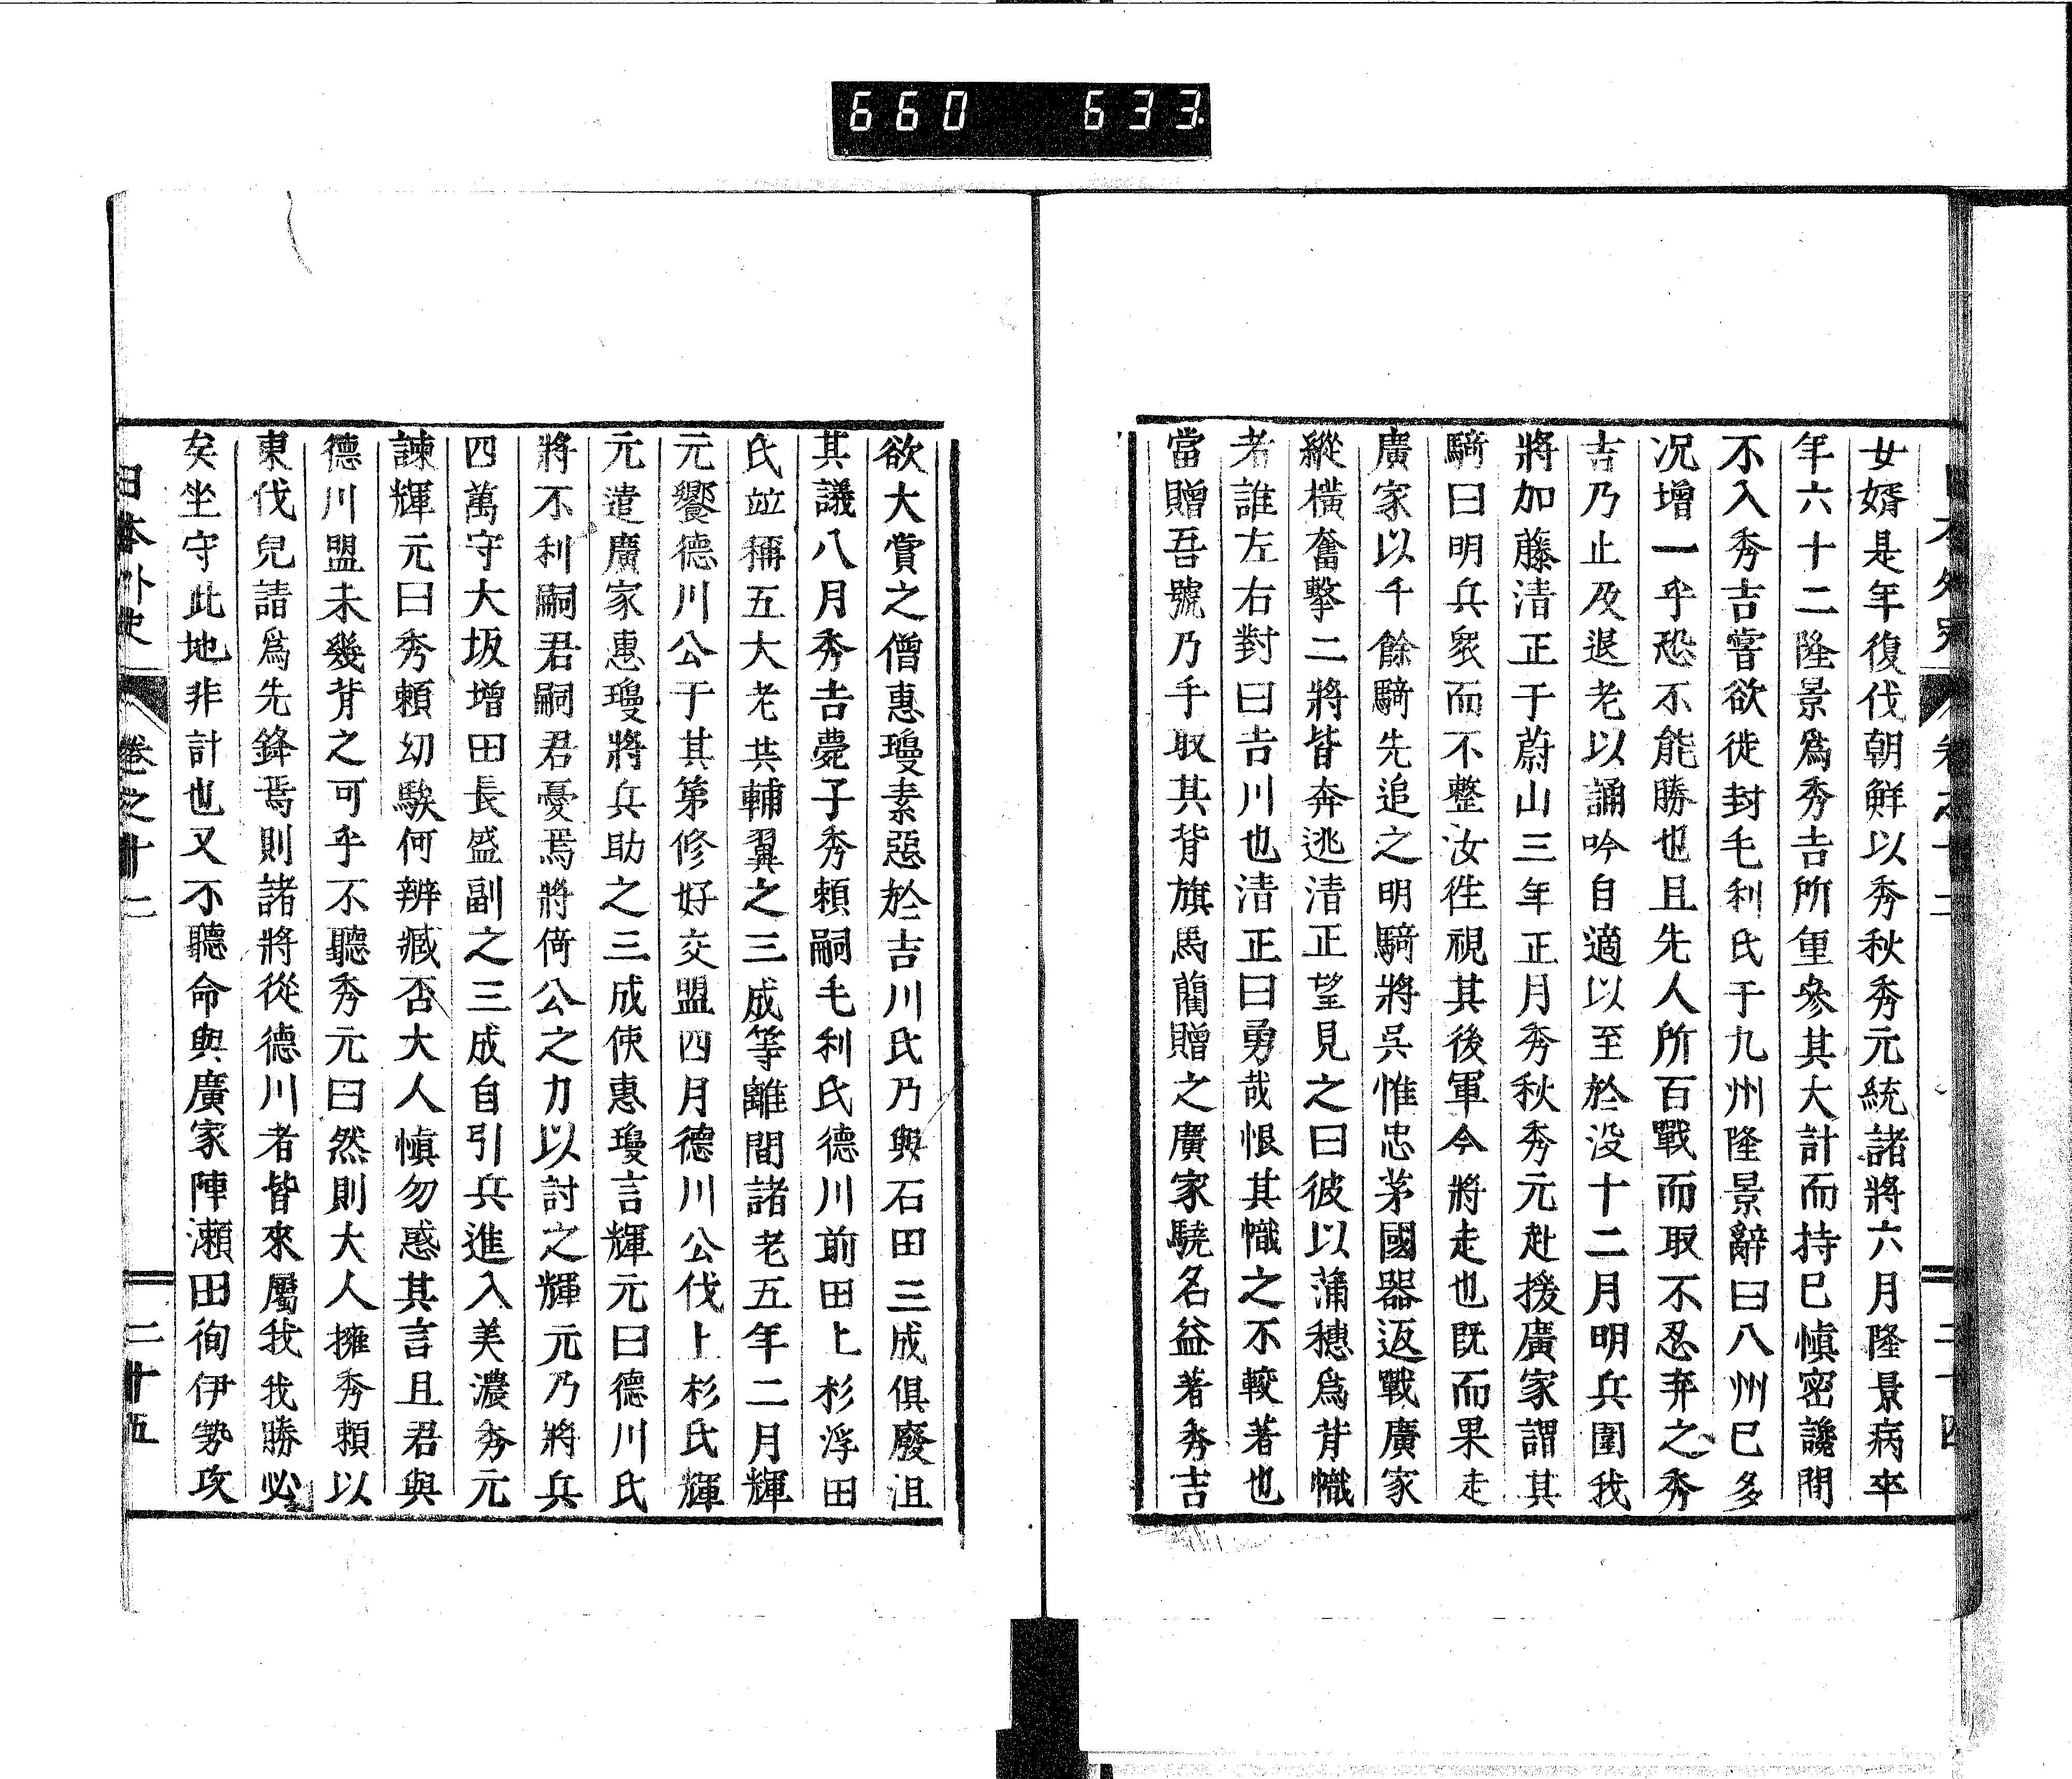 660 633
女婿是年復伐朝鮮以秀秋秀元統諸將六月隆景病卒
年六十二隆景爲秀吉所重參其大計而持己愼密讒間
不入秀吉嘗欲徙封毛利氏于九州隆景辭曰八州已多
況增一乎恐不能勝也且先人所百戰而取不忍弃之秀
吉乃止及退老以誦吟自適以至於没十二月明兵圍我
將加藤淸正于蔚山三年正月秀秋秀元赴援廣家謂其
騎曰明兵眾而不整汝徃視其後軍今將走也既而果走
廣家以千餘騎先追之明騎將吳惟忠茅國器返戰廣家
縱橫奮擊二將皆奔逃淸正望見之曰彼以蒲穗爲背幟
者誰左右對曰吉川也淸正曰勇哉恨其幟之不較著也
當贈吾號乃手取其背旗馬藺贈之廣家驍名益著秀吉
欲大賞之僧惠瓊素惡於吉川氏乃與石田三成俱廢沮
其議八月秀吉薨子秀賴嗣毛利氏德川前田上杉浮田
氏竝稱五大老共輔翼之三成等離間諸老五年二月輝
元饗德川公于其第修好交盟四月德川公伐上杉氏輝
元遣廣家惠瓊將兵助之三成使惠瓊言輝元曰德川氏
將不利嗣君嗣君憂焉將倚公之力以討之輝元乃將兵
四萬守大坂增田長盛副之三成自引兵進入美濃秀元
諫輝元曰秀賴幼騃何辨臧否大人愼勿惑其言且君與
德川盟未幾背之可乎不聽秀元曰然則大人擁秀賴以
東伐兒請爲先鋒焉則諸將從德川者皆來屬我我勝必
矣坐守此地非計也又不聽命與廣家陣瀨田徇伊勢攻
日本外史 卷之十二 二十五